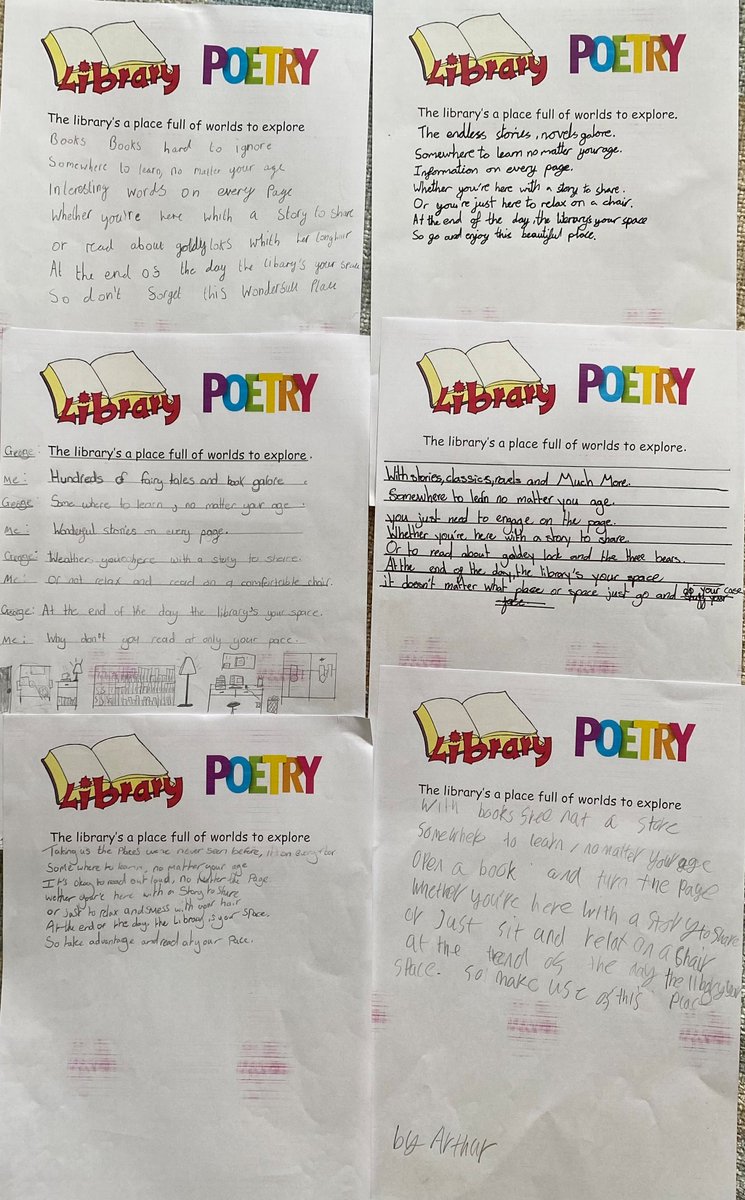 Library POETRY
The library's a place full of worlds to explore
Books Books hard to ignore
Somewhere to learn, no matter your age
Interesting words on every Page
Whether you're here whith a Story to share
or read about goldy loks whith her longhair
At the end of the day the libary's your space
So don't forget this Wonderfull Place
Library POETRY
The library's a place full of worlds to explore.
The endless stories, novels galore.
Somewhere to learn no matter your age.
Information on every page.
Whether you're here with a story to share.
Or you're just here to relax on a chair.
At the end of the day, the library's your space
So go and enjoy this beautiful place.
Library POETRY
George: The library's a place full of worlds to explore.
Me: Hundreds of fairy tales and book galore.
George: Some where to learn, no matter your age.
Me: Wonderful stories on every page.
George: Weather your here with a story to share.
Me: Or not relax and read on a comfortable chair.
George: At the end of the day the library's your space.
Me: Why don't you read at only your pace.
Library POETRY
The library's a place full of worlds to explore.
With stories, classics, novels and Much More.
Somewhere to learn no matter you age.
you just need to engage on the page.
Whether you're here with a story to share.
Or to read about goldey lock and the three bears.
At the end of the day, the library's your space
it doesn't matter what place or space just go and do your case
stuff your
face
Library POETRY
The library's a place full of worlds to explore
Taking us the Places we've never seen before, it's on
Some where to learn, no matter your age
It's Okay to read out loud, no matter the Page.
wether your'e here with a Story to share
or just to relax and mess with your hair
At the end of the day, the Library is your space.
So take advantage and read at your Pace.
Library POETRY
The library's a place full of worlds to explore
With books not a store
to learn, no matter your age
open a book and turn the page
Whether you're here with a story to share
or just sit and relax on a chair
at the of the day the library your
space. so make use of this place
by Arthur